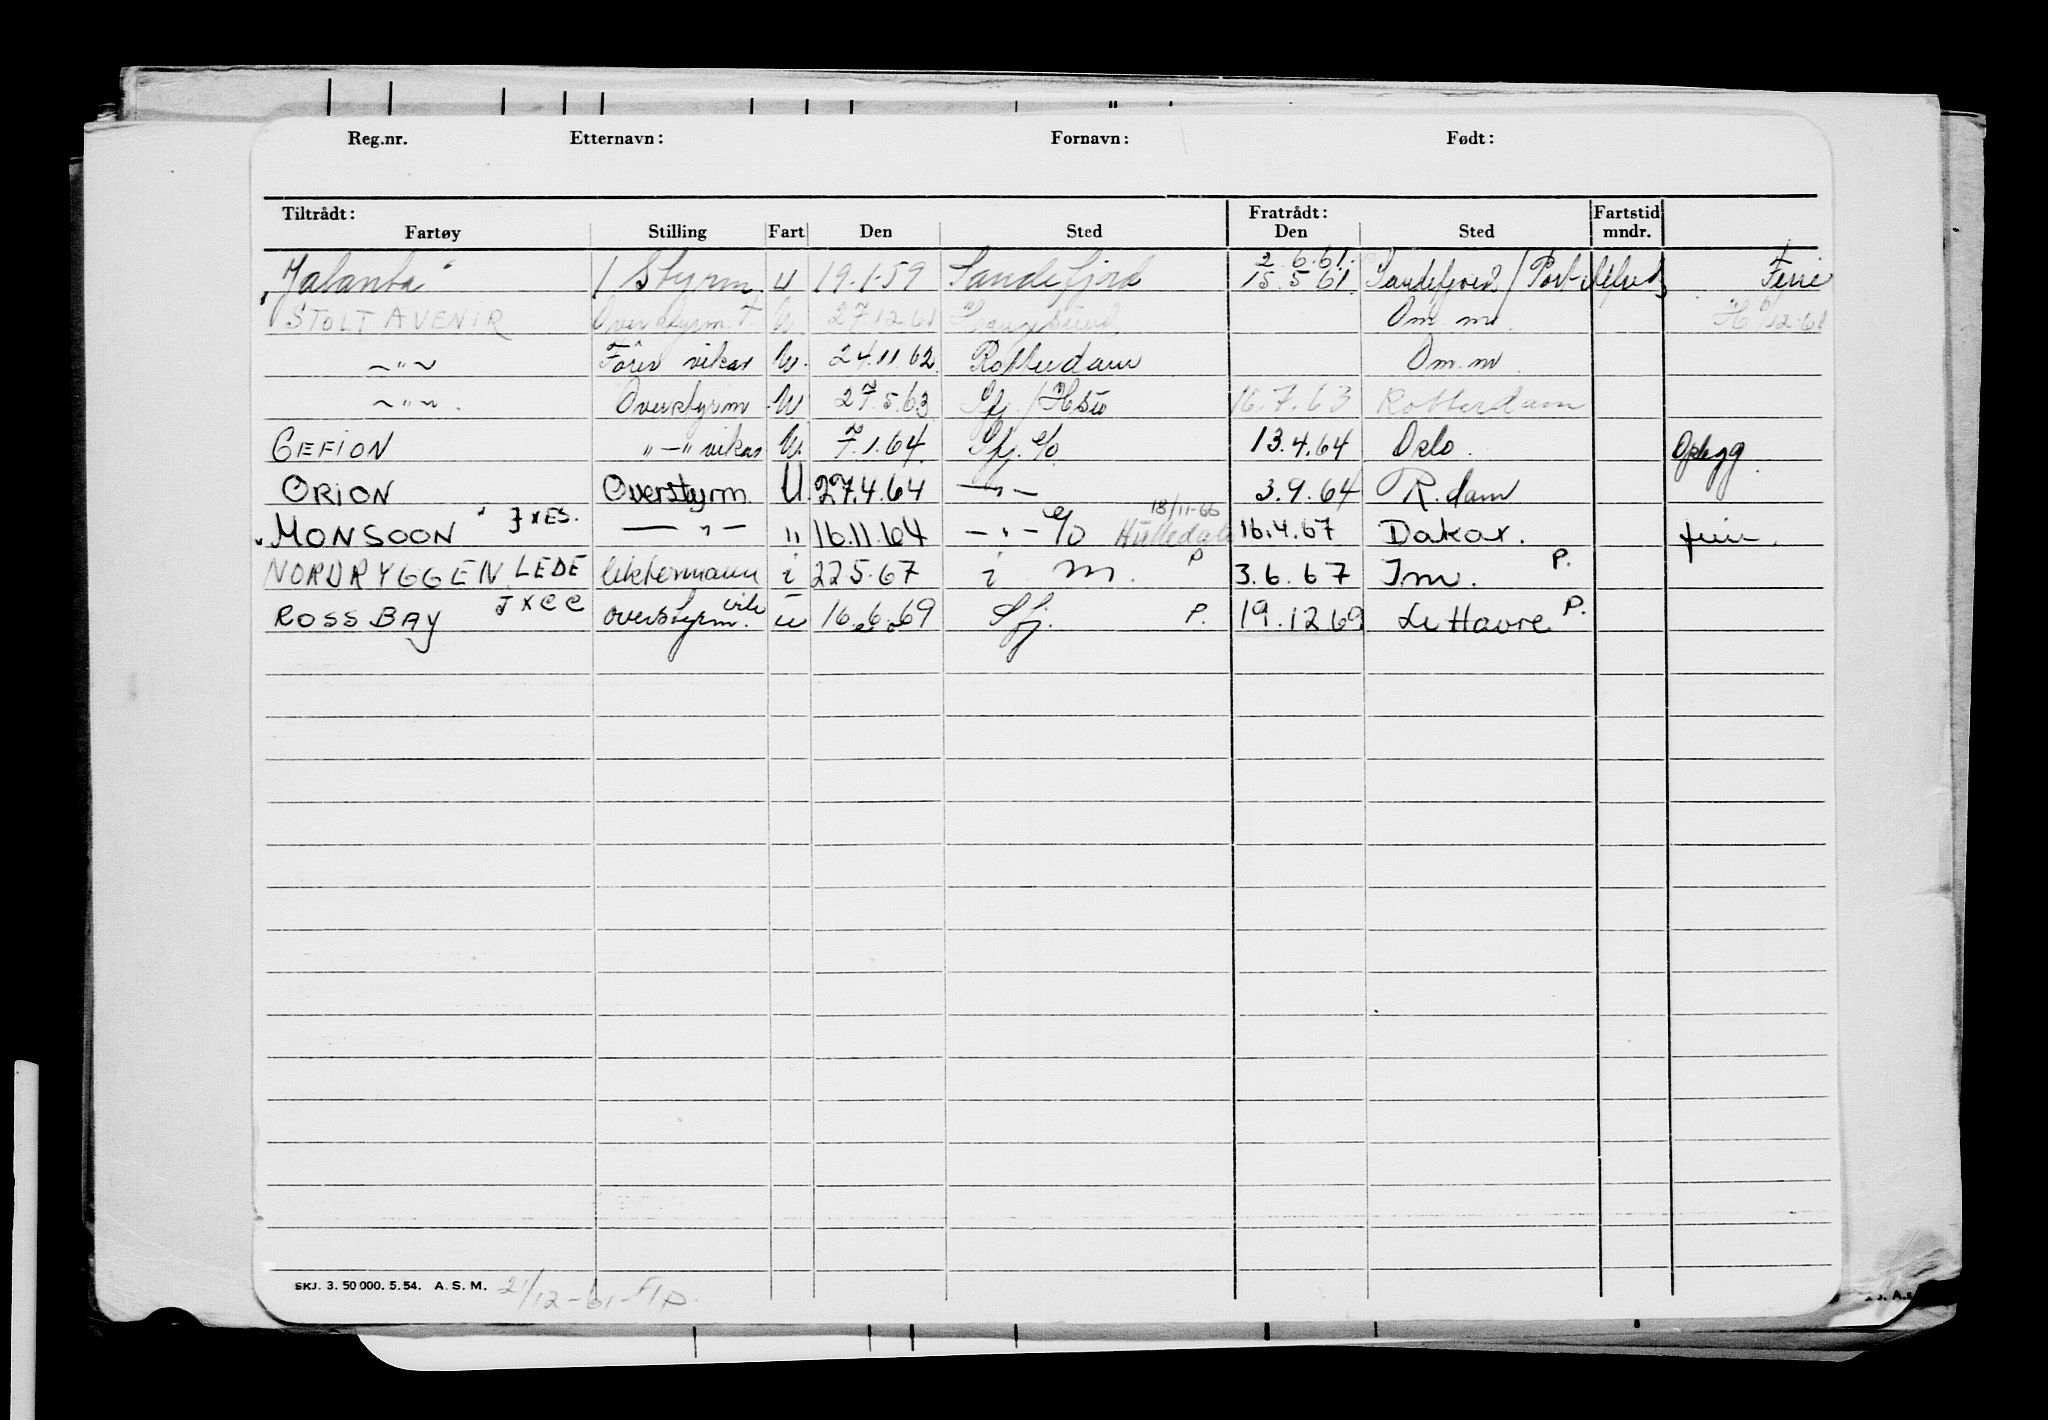 Reg.nr. Etternavn: Fornavn: Født:
Tiltrådt: Fratrådt: Fartstid
Fartøy Stilling Fart Den Sted Den Sted mndr.
2.6.61.
"Jalanta" 1 Styrm u 19.1.59 Sandefjord 15.5.61 Sandefjord / Port Ferie
STOLT AVENIR Overstyrm. T. U. 27.12.61 Haugesund Om. m. 12-61
～"～ Fører vikar U. 24.11.62 Rotterdam Om. m.
～"～. Overstyrm U 27.5.63 Sfj. / 16.7.63 Rotterdam
GEFION "—" vikar U. 7.1.64. Sfj. e/o 13.4.64 Oslo. Oplegg.
ORION Overstyrm. U. 27.4.64 —"— 3.9.64 R.dam
18/11-66
"MONSOON" JXES. — " — " 16.11.64 —"— e/o 16.4.67 Dakar. ferie.
NORDRYGGEN LEDE lektermann i 22.5.67 i m. P 3.6.67 I m. P.
ROSS BAY JXCC overstyrm. vik u 16.6.69 Sfj. P. 19.12.69 Le Havre P.
SKJ. 3. 50 000. 5.54. A. S. M. 21/12-61